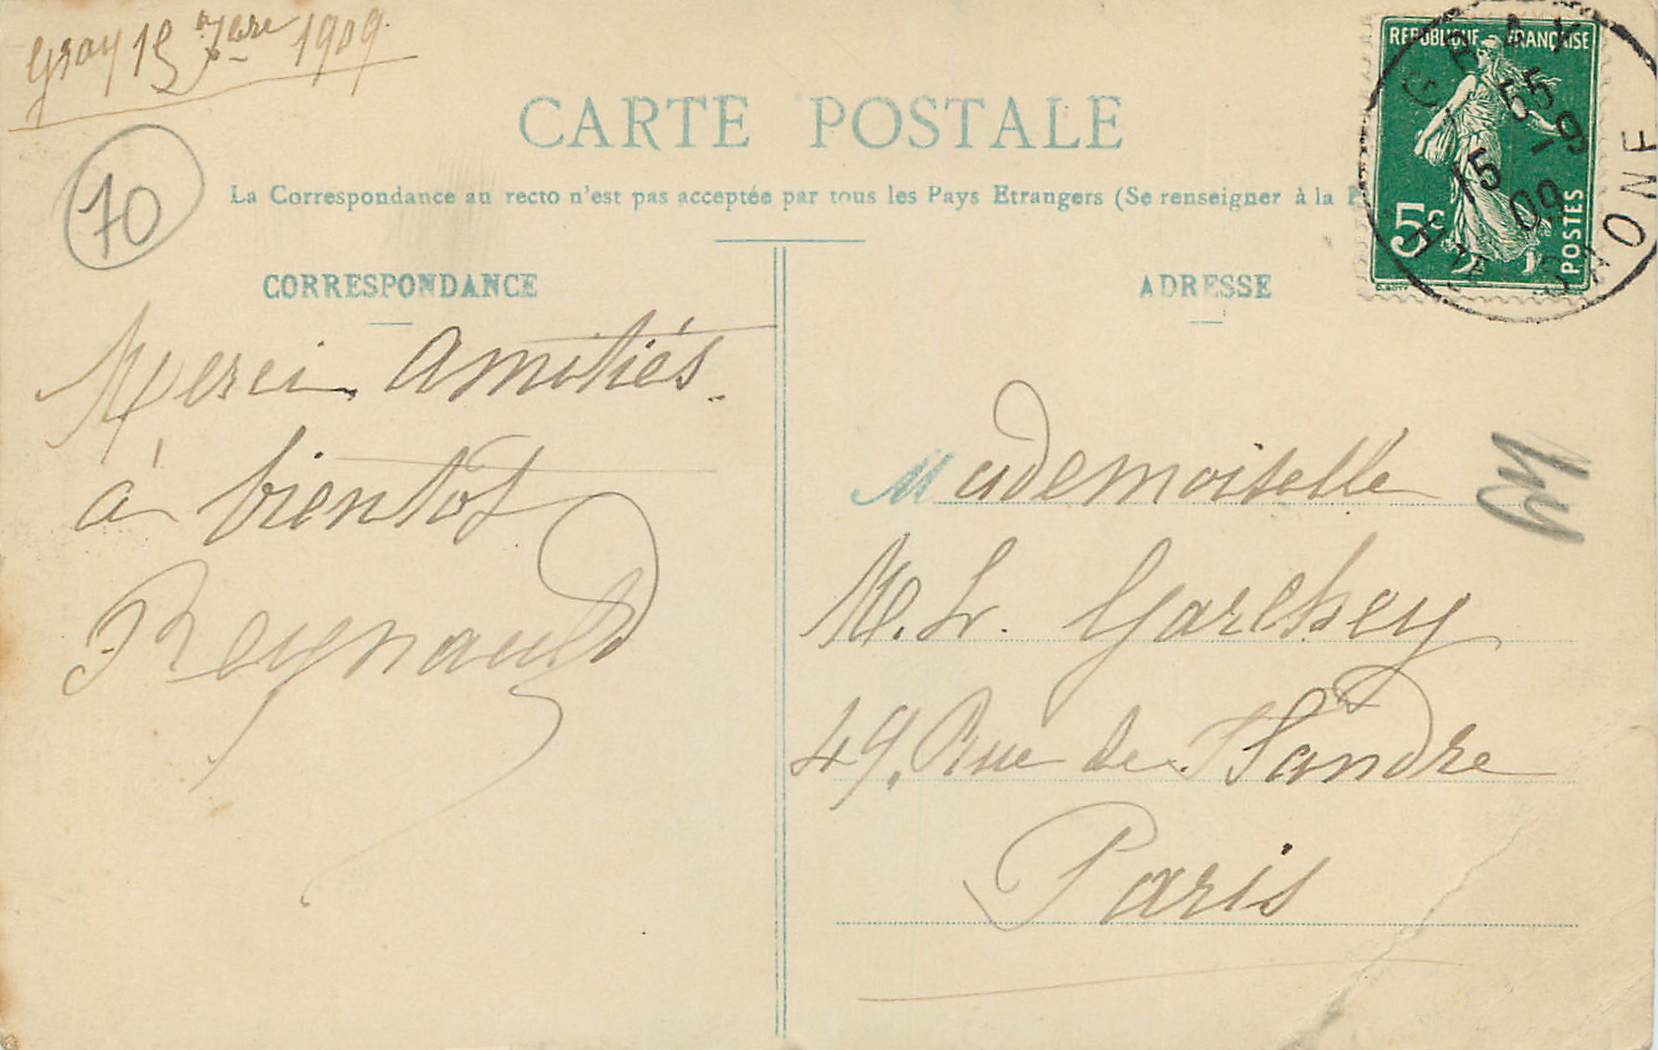 Gray 15 7bre 1909
CARTE POSTALE
La Correspondance au recto n'est pas acceptée par tous les Pays Etrangers (Se renseigner à la
70
CORRESPONDANCE
Merci amitiés.
à bientôt
Reynauld
ADRESSE
Mademoiselle
M. L. Garchey
49, Rue de Flandre
Paris
REPUBLIQUE FRANÇAISE
5c
POSTES
GRAY
55
15 -9
09
HTE SAONE